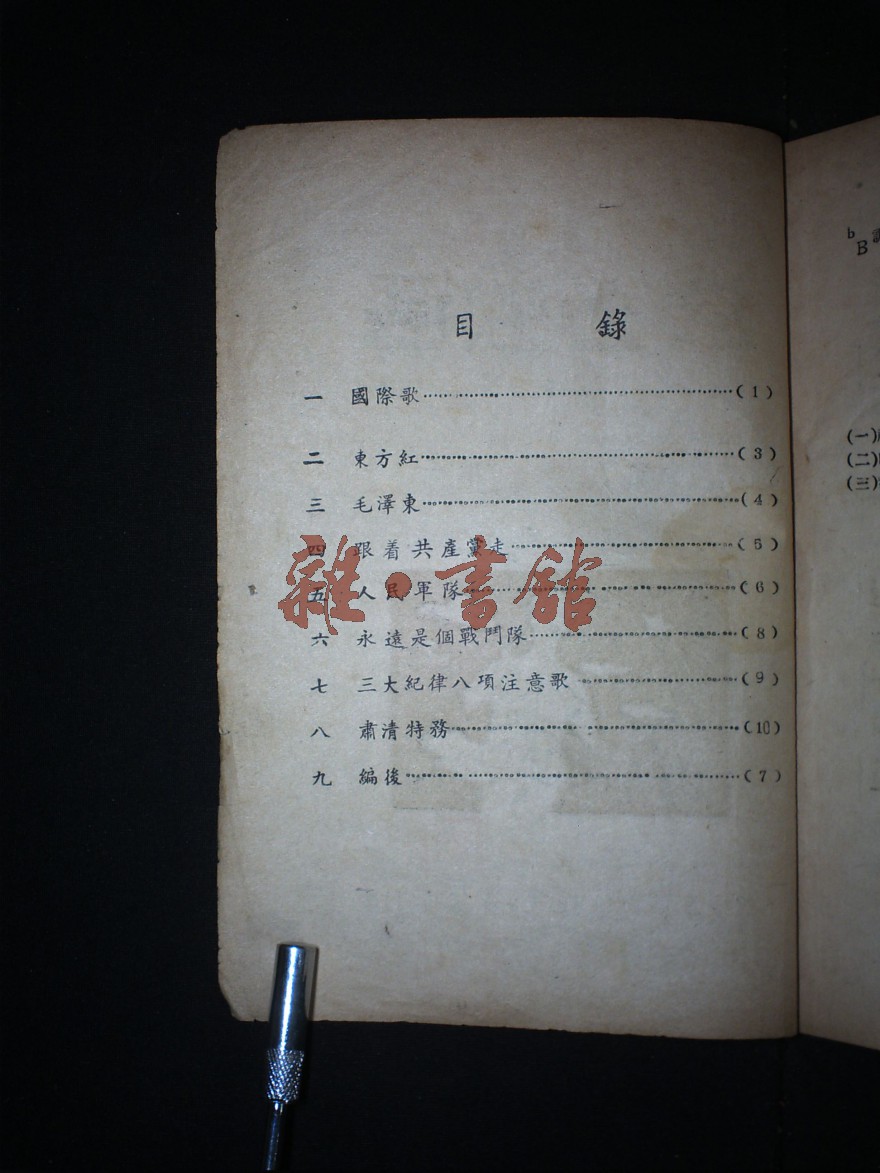 目 錄
一 國際歌……(1)
二 東方紅……(3)
三 毛澤東……(4)
四 跟着共產黨走……(5)
五 人民軍隊……(6)
六 永遠是個戰鬥隊……(8)
七 三大紀律八項注意歌……(9)
八 肅清特務……(10)
九 編後……(7)
雜·書館
b
B
(一)
(二)
(三)